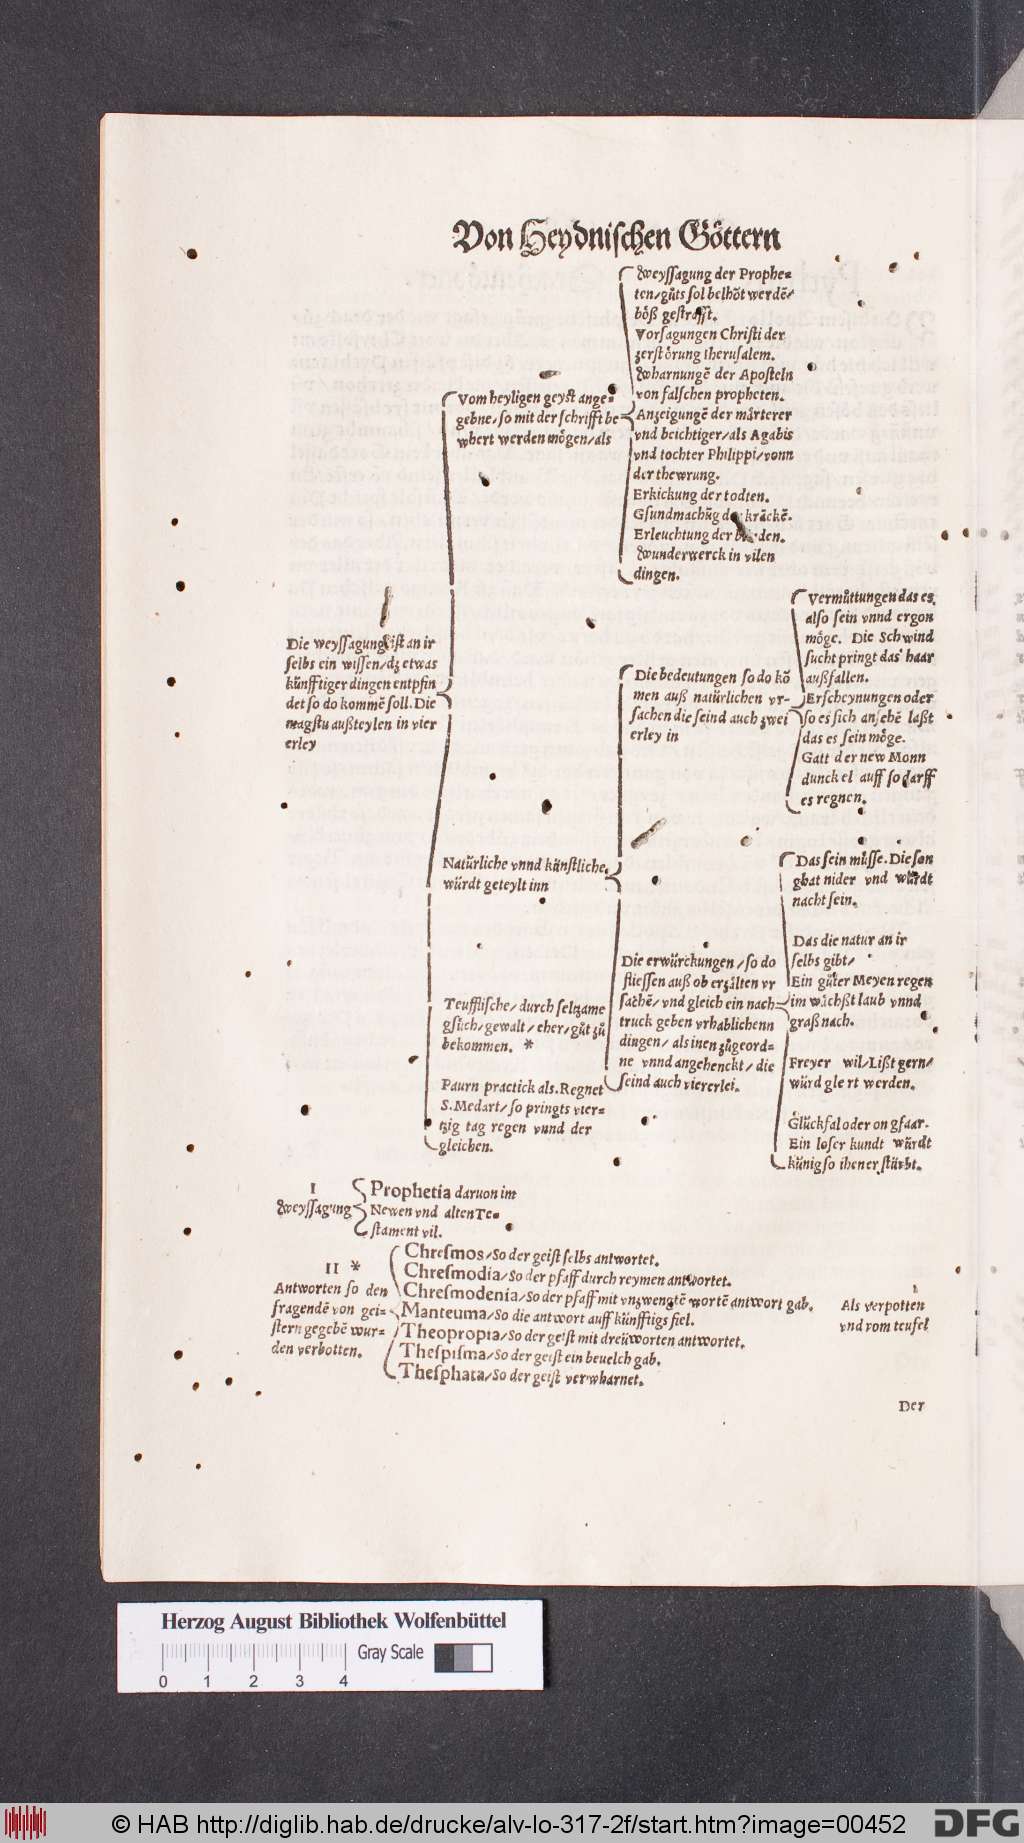 Von Heydnischen Göttern
Weyssagung der Prophe=
ten/gůts sol belhöt werdē/
böß gestrafft.
Vorsagungen Christi der
zerstörung Iherusalem.
Wharnungē der Aposteln
von falschen propheten.
Anzeigungē der mårterer
vnd beichtiger/als Agabis
vnd tochter Philippi/vonn
der thewrung.
Erkickung der todten.
Gsundmachūg der kråckē.
Erleuchtung der den.
Wunderwerck in vilen
dingen.
Vom heyligen geyst ange=
gebne/so mit der schrifft be
whert werden mögen/als
Die weyssagung ist an ir
selbs ein wissen/dz etwas
künfftiger dingen entpfin
det so do kommē soll. Die
magstu außteylen in vier
erley
Vermůttungen das es
also sein vnnd ergon
möge. Die Schwind
sucht pringt das haar
außfallen.
Die bedeutungen so do kö
men auß natürlichen vr-
sachen die seind auch zwei
erley in
Erscheynungen oder
so es sich ansehē laßt
das es sein möge.
Gatt der new Monn
dunckel auff so darff
es regnen.
Natürliche vnnd künstliche,
würdt geteylt inn
Das sein müsse. Die son
ghat nider vnd würdt
nacht sein.
Das die natur an ir
selbs gibt/
Ein gůter Meyen regen
im wåchßt laub vnnd
graß nach.
Die erwürckungen/so do
fliessen auß ob erzålten vr
sachē/vnd gleich ein nach
truck geben vrhablichenn
dingen/als inen zůgeord=
ne vnnd angehenckt/die
seind auch viererlei.
Freyer wil/Lißt gern/
würd glert werden.
Glückfal oder on gfaar.
Ein loser kundt würdt
künig so ihener stürbt.
Teufflische/durch seltzame
gsůch/gewalt/eher/gůt zů
bekommen. *
Paurn practick als. Regnet
S. Medart/so pringts vier=
tzig tag regen vnnd der
gleichen.
I
Weyssagung
Prophetia daruon im
Newen vnd alten Te=
stament vil.
II *
Antworten so den
fragendē von gei=
stern gegebē wur=
den verbotten.
Chresmos/So der geist selbs antwortet.
Chresmodia/So der pfaff durch reymen antwortet.
Chresmodenia/So der pfaff mit vnzwengtē wortē antwort gab.
Manteuma/So die antwort auff künfftigs fiel.
Theopropia/So der geist mit dreüworten antwortet.
Thespisma/So der geist ein beuelch gab.
Thesphata/So der geist verwharnet.
Als verpotten
vnd vom teufel
Der
Herzog August Bibliothek Wolfenbüttel
Gray Scale
0 1 2 3 4
© HAB http://diglib.hab.de/drucke/alv-lo-317-2f/start.htm?image=00452
DFG